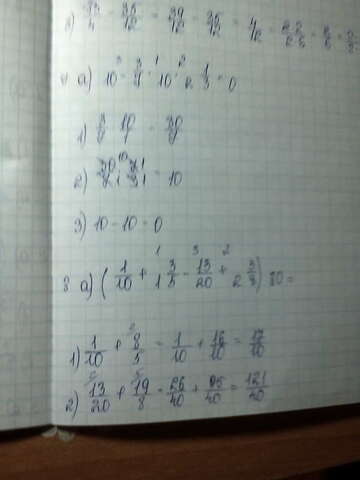 3) 39/4 - 35/12 = 39/12 - 35/12 = 4/12 = 2·2/2·6 = 2/6 =
4 а) 10 - 3/7 · 10 · 2 1/3 = 0
1) 3/7 · 10/1 = 30/7
2) 30/7 · 7/3 = 10
3) 10 - 10 = 0
8 а) (1/10 + 1 3/5 - 13/20 + 2 3/8) 80 =
1) 1/10 + 8/5 = 1/10 + 16/10 = 17/10
2) 13/20 + 19/8 = 26/40 + 95/40 = 121/40